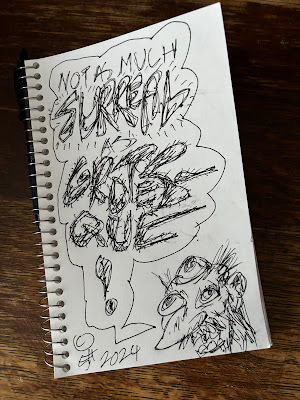 NOT A MUCH
SURREAL
AS
GROTES-
QUE
!
2024